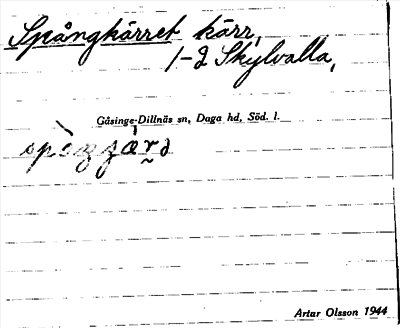 Spångkärret kärr,
1-2 Skylvalla,
Gåsinge-Dillnäs sn, Daga hd, Söd. l.
Artur Olsson 1944